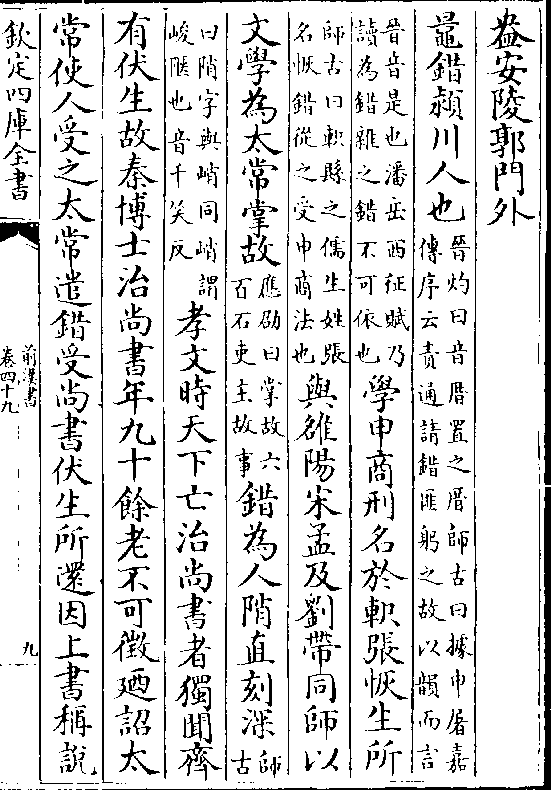 盎安陵郭門外
鼂錯潁川人也晉灼曰音厝置之厝師古曰據申屠嘉
傳序云責通請錯匪躬之故以韻而言
晉音是也潘岳西征賦乃
讀為錯雜之錯不可依也學申商刑名於軹張恢生所
師古曰軹縣之儒生姓張
名恢錯從之受申商法也與雒陽宋孟及劉帶同師以
文學為太常掌故應劭曰掌故六
百石吏主故事錯為人陗直刻深師古
曰陗字與峭同峭謂
峻陿也音千笑反孝文時天下亡治尚書者獨聞齊
有伏生故秦博士治尚書年九十餘老不可徵廼詔太
常使人受之太常遣錯受尚書伏生所還因上書稱說
欽定四庫全書
前漢書
卷四十九
九